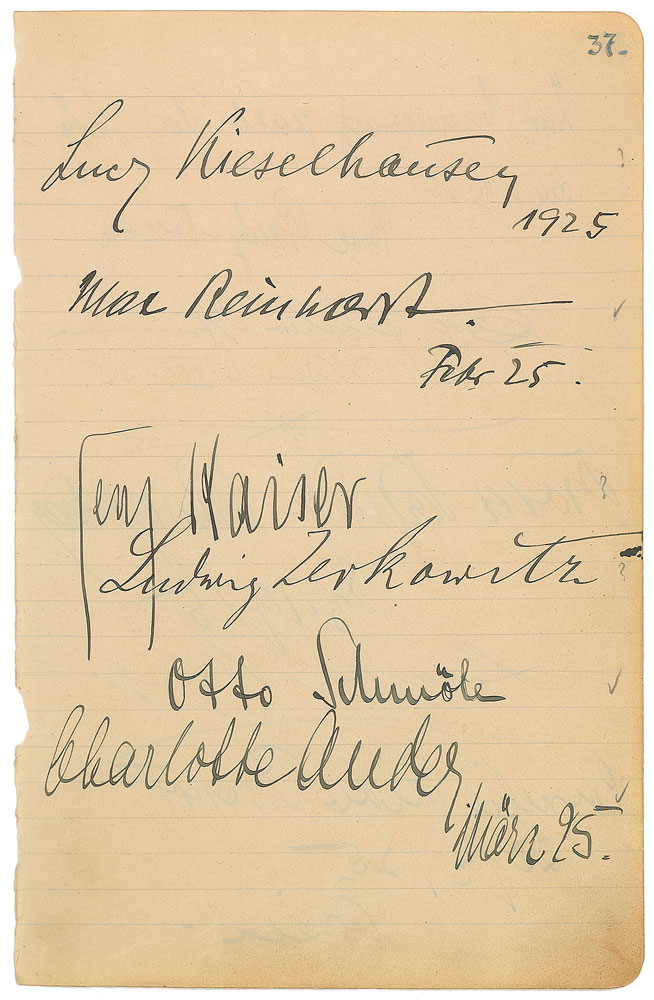 37.
Lucy Kieselhausen
1925
Max Reinhardt.
Febr 25.
Kaiser
Ludwig Zerkowitz
Otto Schmöle
Charlotte Ander
März 25.